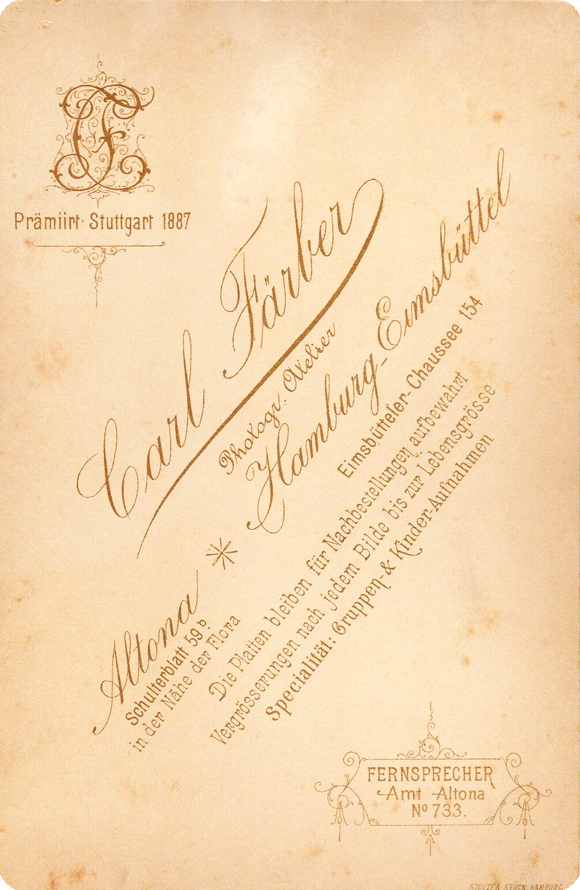 CF
Prämiirt Stuttgart 1887
Carl Färber
Photogr. Atelier
Hamburg-Eimsbüttel
Eimsbütteler-Chaussee 154
Altona
Schulterblatt 59 b
in der Nähe der Flora
Die Platten bleiben für Nachbestellungen aufbewahrt
Vergrösserungen nach jedem Bilde bis zur Lebensgrösse
Specialität: Gruppen- & Kinder-Aufnahmen
FERNSPRECHER
Amt Altona
No 733.
STOLZE & STÜCK, HAMBURG.